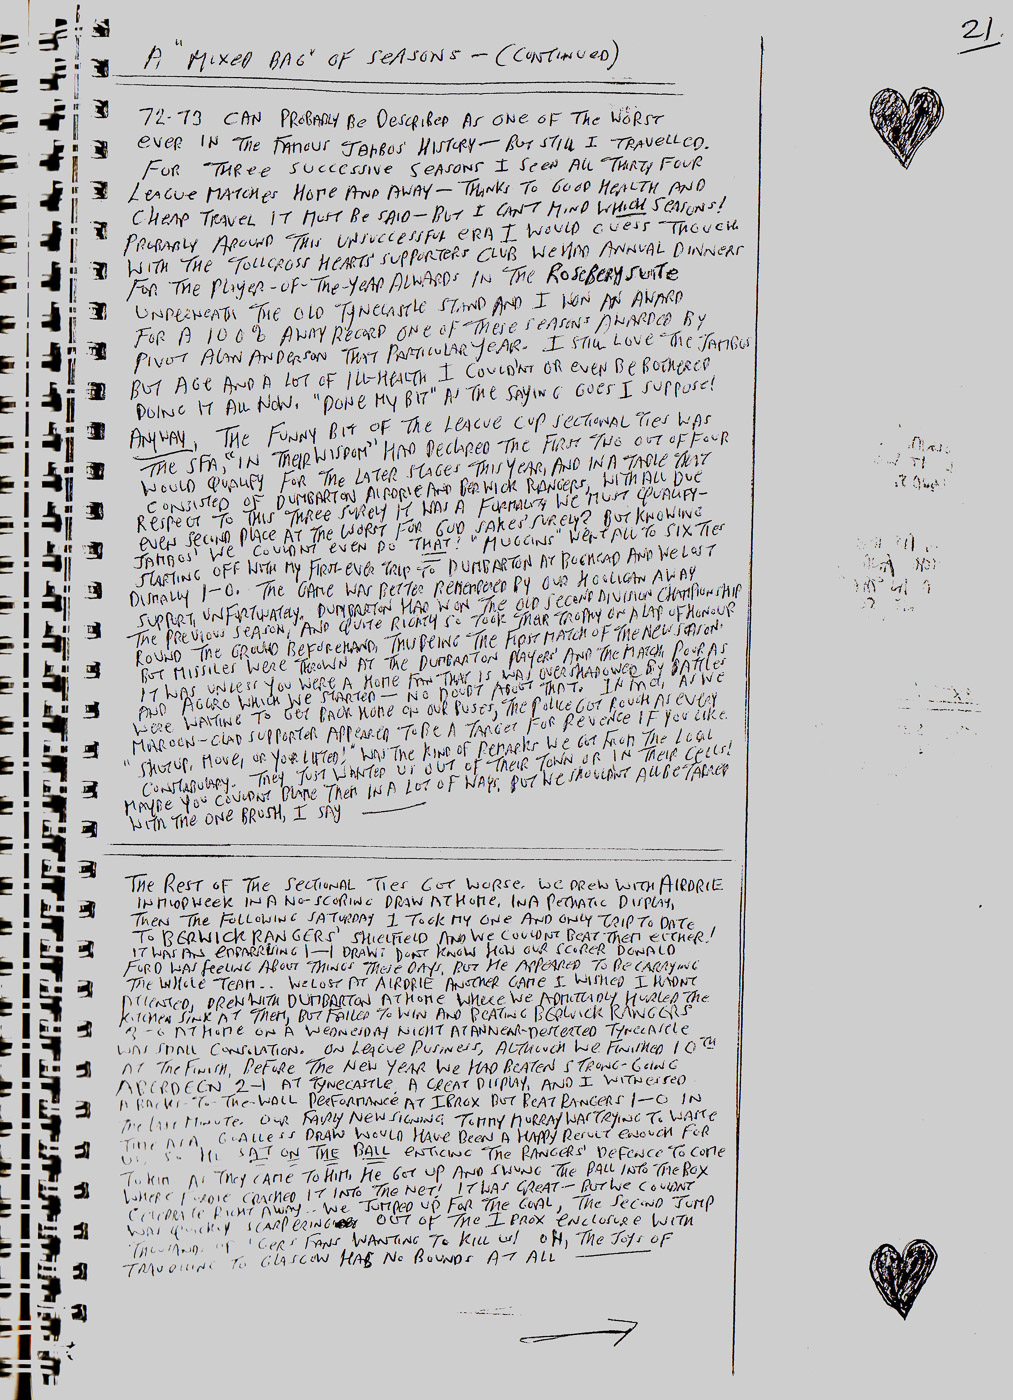 21.
A "MIXED BAG" OF SEASONS - (CONTINUED)
72-73 CAN PROBABLY BE DESCRIBED AS ONE OF THE WORST
EVER IN THE FAMOUS JAMBOS' HISTORY - BUT STILL I TRAVELLED.
FOR THREE SUCCESSIVE SEASONS I SEEN ALL THIRTY FOUR
LEAGUE MATCHES HOME AND AWAY - THANKS TO GOOD HEALTH AND
CHEAP TRAVEL IT MUST BE SAID - BUT I CAN'T MIND WHICH SEASONS!
PROBABLY AROUND THIS UNSUCCESSFUL ERA I WOULD GUESS THOUGH.
WITH THE TOLLCROSS HEARTS' SUPPORTERS CLUB WE HAD ANNUAL DINNERS
FOR THE PLAYER-OF-THE-YEAR AWARDS IN THE ROSEBERY SUITE
UNDERNEATH THE OLD TYNECASTLE STAND AND I WON AN AWARD
FOR A 100% AWAY RECORD ONE OF THESE SEASONS AWARDED BY
PIVOT ALAN ANDERSON THAT PARTICULAR YEAR. I STILL LOVE THE JAMBOS
BUT AGE AND A LOT OF ILL-HEALTH I COULDN'T OR EVEN BE BOTHERED
DOING IT ALL NOW. "DONE MY BIT" AS THE SAYING GOES I SUPPOSE!
ANYWAY, THE FUNNY BIT OF THE LEAGUE CUP SECTIONAL TIES WAS
THE SFA, "IN THEIR WISDOM" HAD DECLARED THE FIRST TWO OUT OF FOUR
WOULD QUALIFY FOR THE LATER STAGES THIS YEAR, AND IN A TABLE THAT
CONSISTED OF DUMBARTON AIRDRIE AND BERWICK RANGERS, WITH ALL DUE
RESPECT TO THIS THREE SURELY IT WAS A FORMALITY WE MUST QUALIFY-
EVEN SECOND PLACE AT THE WORST FOR GOD SAKES SURELY? BUT KNOWING
JAMBOS' WE COULDN'T EVEN DO THAT! "MUGGINS" WENT ALL TO SIX TIES
STARTING OFF WITH MY FIRST-EVER TRIP TO DUMBARTON AT BOGHEAD AND WE LOST
DISMALLY 1-0. THE GAME WAS BETTER REMEMBERED BY OUR HOOLIGAN AWAY
SUPPORT, UNFORTUNATELY. DUMBARTON HAD WON THE OLD SECOND DIVISION CHAMPIONSHIP
THE PREVIOUS SEASON, AND QUITE RIGHTLY SO TOOK THEIR TROPHY ON A LAP OF HONOUR
ROUND THE GROUND BEFOREHAND, THIS BEING THE FIRST MATCH OF THE NEW SEASON.
BUT MISSILES WERE THROWN AT THE DUMBARTON PLAYERS AND THE MATCH, POOR AS
IT WAS UNLESS YOU WERE A HOME FAN THAT IS WAS OVERSHADOWED BY BATTLES
AND AGGRO WHICH WE STARTED - NO DOUBT ABOUT THAT. IN FACT, AS WE
WERE WAITING TO GET BACK HOME ON OUR BUSES, THE POLICE GOT ROUGH AS EVERY
MAROON-CLAD SUPPORTER APPEARED TO BE A TARGET FOR REVENGE IF YOU LIKE.
"SHUTUP, MOVE, OR YOUR LIFTED!" WAS THE KIND OF REMARKS WE GOT FROM THE LOCAL
CONSTABULARY. THEY JUST WANTED US OUT OF THEIR TOWN OR IN THEIR CELLS!
MAYBE YOU COULDN'T BLAME THEM IN A LOT OF WAYS, BUT WE SHOULDN'T ALL BE TARRED
WITH THE ONE BRUSH, I SAY
THE REST OF THE SECTIONAL TIES GOT WORSE. WE DREW WITH AIRDRIE
IN MIDWEEK IN A NO-SCORING DRAW AT HOME, IN A PETHATIC DISPLAY,
THEN THE FOLLOWING SATURDAY I TOOK MY ONE AND ONLY TRIP TO DATE
TO BERWICK RANGERS' SHIELFIELD AND WE COULDN'T BEAT THEM EITHER!
IT WAS AN EMBARRSING 1-1 DRAW. DON'T KNOW HOW OUR SCORER DONALD
FORD WAS FEELING ABOUT THINGS THESE DAYS, BUT HE APPEARED TO BE CARRYING
THE WHOLE TEAM.. WE LOST AT AIRDRIE ANOTHER GAME I WISHED I HADN'T
ATTENTED, DREW WITH DUMBARTON AT HOME WHERE WE ADMITTADLY HURLED THE
KITCHEN SINK AT THEM, BUT FAILED TO WIN AND BEATING BERWICK RANGERS
3-0 AT HOME ON A WEDNESDAY NIGHT AT A NNEAR-DESERTED TYNECASTLE
WAS SMALL CONSOLATION. ON LEAGUE BUSINESS, ALTHOUGH WE FINISHED 10TH
AT THE FINISH, BEFORE THE NEW YEAR WE HAD BEATEN STRONG-GOING
ABERDEEN 2-1 AT TYNECASTLE, A GREAT DISPLAY, AND I WITNESSED
A BACKS-TO-THE-WALL PERFORMANCE AT IBROX BUT BEAT RANGERS 1-0 IN
THE LAST MINUTE. OUR FAIRLY NEW SIGNING TOMMY MURRAY WAS TRYING TO WASTE
TIME AS A GOALLESS DRAW WOULD HAVE BEEN A HAPPY RESULT ENOUGH FOR
US, SO HE SAT ON THE BALL ENTICING THE RANGERS' DEFENCE TO COME
TO HIM. AS THEY CAME TO HIM, HE GOT UP AND SWUNG THE BALL INTO THE BOX
WHERE CRASHED IT INTO THE NET! IT WAS GREAT - BUT WE COULDN'T
CELEBRATE RIGHT AWAY.. WE JUMPED UP FOR THE GOAL, THE SECOND JUMP
WAS QUICKLY SCARPERING OUT OF THE IBROX ENCLOSURE WITH
THOUSANDS OF 'GERS FANS WANTING TO KILL US! OH, THE JOYS OF
TRAVELLING TO GLASGOW HAS NO BOUNDS AT ALL